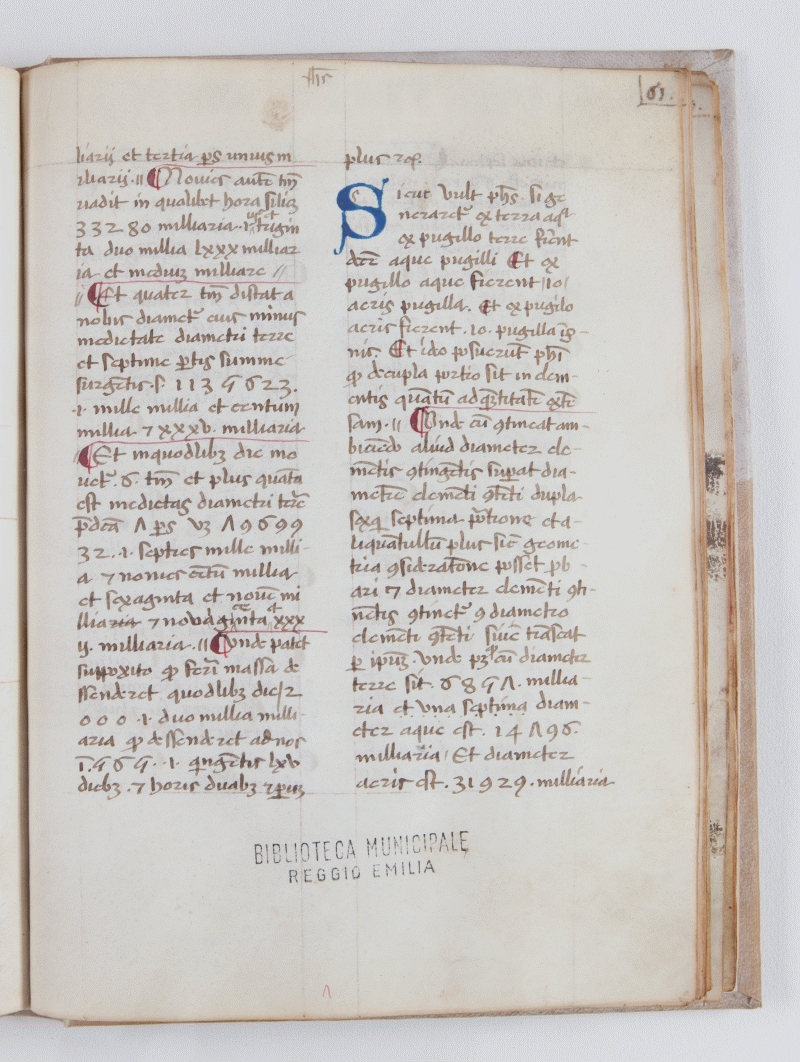 61.
liarij et tertia ps unius m
iliarij. Novies autē tm̄
vadit in qualibet hora silicz
33280 milliaria .i. trigin
ta duo millia lxxx milliar
ia et mediuz milliare //
Et quater tm̄ distat a
nobis diamet̄ eius minus
medietate diametri terre
et septime ptis summe
surgētis .s. 1139623.
.i. mille millia et centum
millia 7 xxxv. milliaria
Et in quodlibz die mo
uet̄. 6. tm̄ et plus quāta
est medietas diametri tere
p̄dcā Λ ps vz Λ9699
32 .i. septies mille milli-
a 7 novies cētū millia-
et sexaginta et novē mi
lliaria 7 novaginta xxx
ij. milliaria. // Unde patet
suppoxito ꝙ feri massa de
ssenderet quodlibz die 12
000 .i. duo millia milli-
aria ꝙ dessenderet ad nos
diebz. 7 horis duabz
plus
Sicut vult phs. si ge
neraret̄ ex terra aq̄
ex pugillo terre fierēt
decē aque pugilli Et ex
pugillo aque fierent 10
aeris pugilla. et ex pugilo
aeris fierent .10. pugilla ig-
nis. Et ideo posuerūt phi
ꝙ decupla portio sit in elem-
entis quātū ad
sam. // Unde cū ꝯtineat am-
biendo aliud diameter ele-
mētis ꝯtingētis supat dia-
metrē elemēti ꝯtēti dupla-
sexq septima et a-
liquantullū plus sic geome-
tria ꝯsideratione posset pb-
ari 7 diameter elemēti ꝯti-
nētis ꝯtinet̄ 9 diametro
elemēti ꝯtēti sive trāseat
p ipuz. Unde pz cū diameter
terre sit. 689Λ. millia-
ria et una septima diam-
eter aque est. 14Λ96.
milliaria / Et diameter
aeris est. 31929. milliaria
BIBLIOTECA MUNICIPALE
REGGIO EMILIA